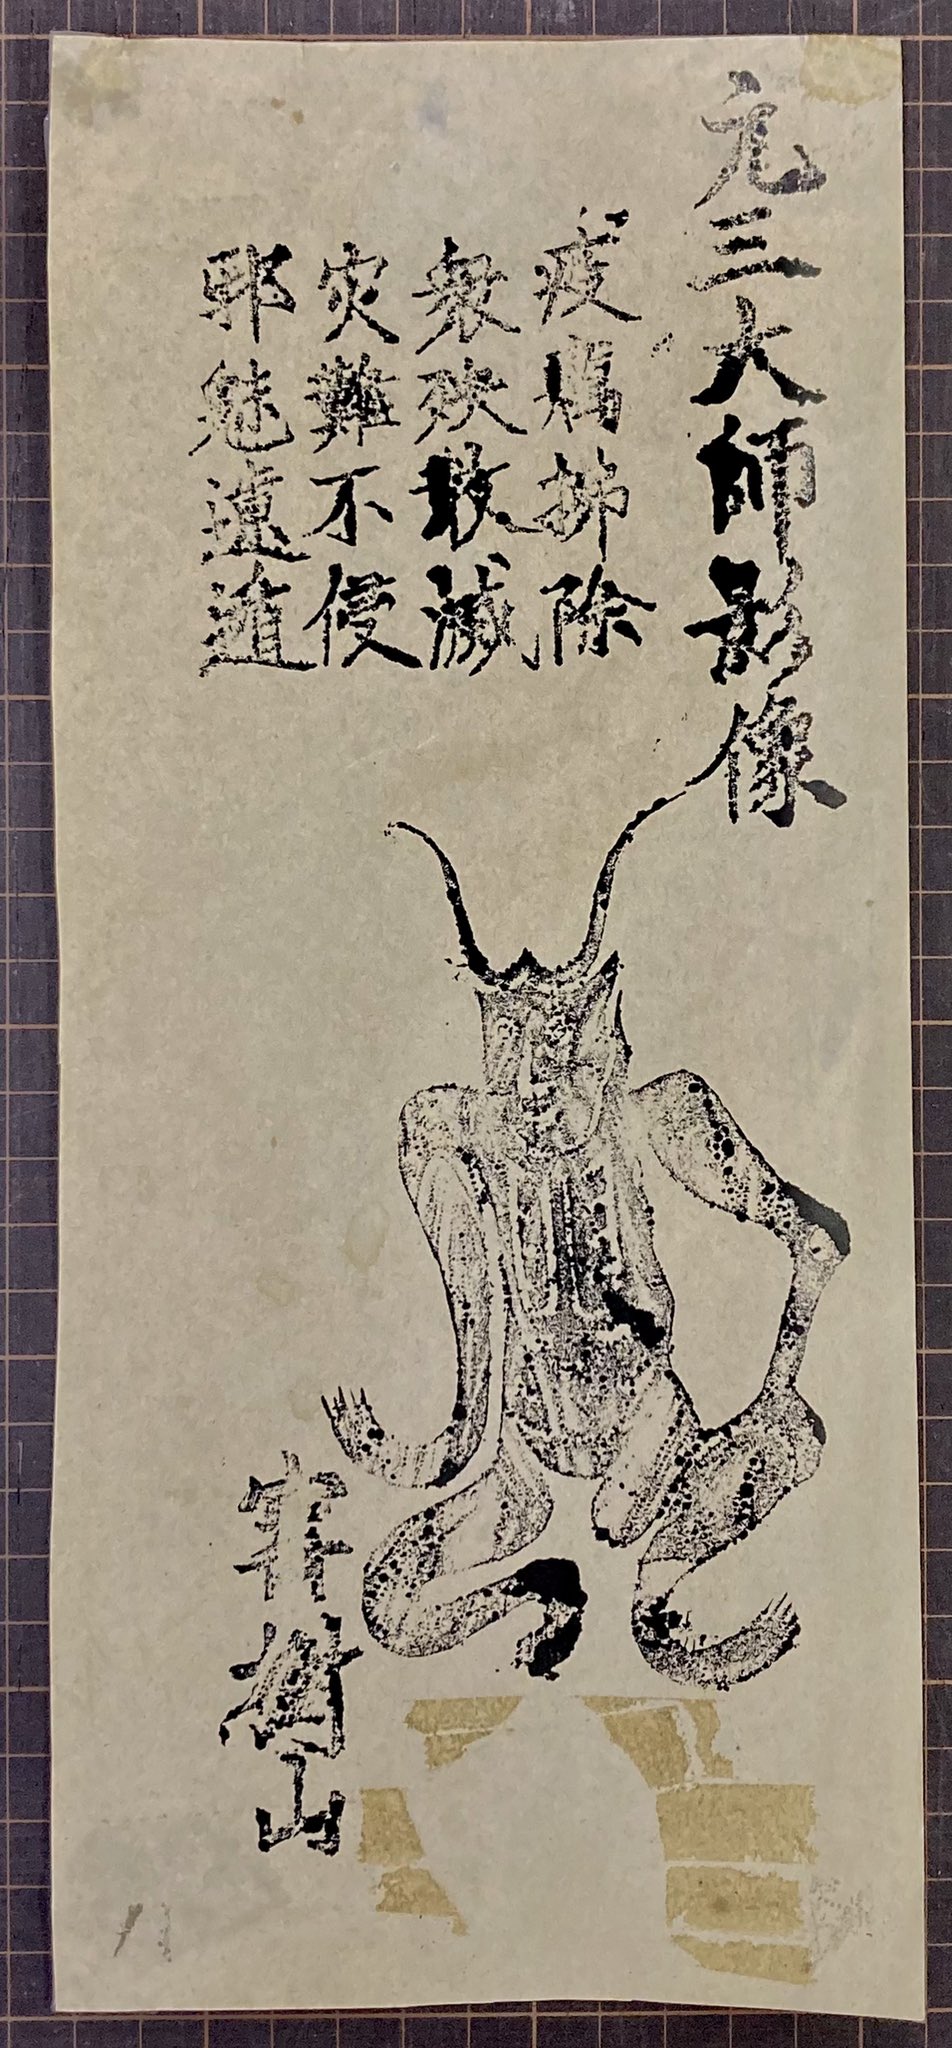 元三大師影像
疫癘拂除
衆殃散滅
灾難不侵
邪魅遠遁
山